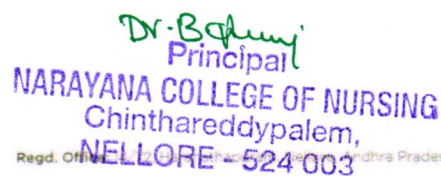 Principal
NARAYANA COLLEGE OF NURSING
Chinthareddypalem,
NELLORE - 524 003
Regd. Office: Andhra Prades